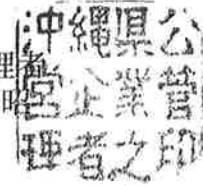 沖縄県公
営企業管
理者之印